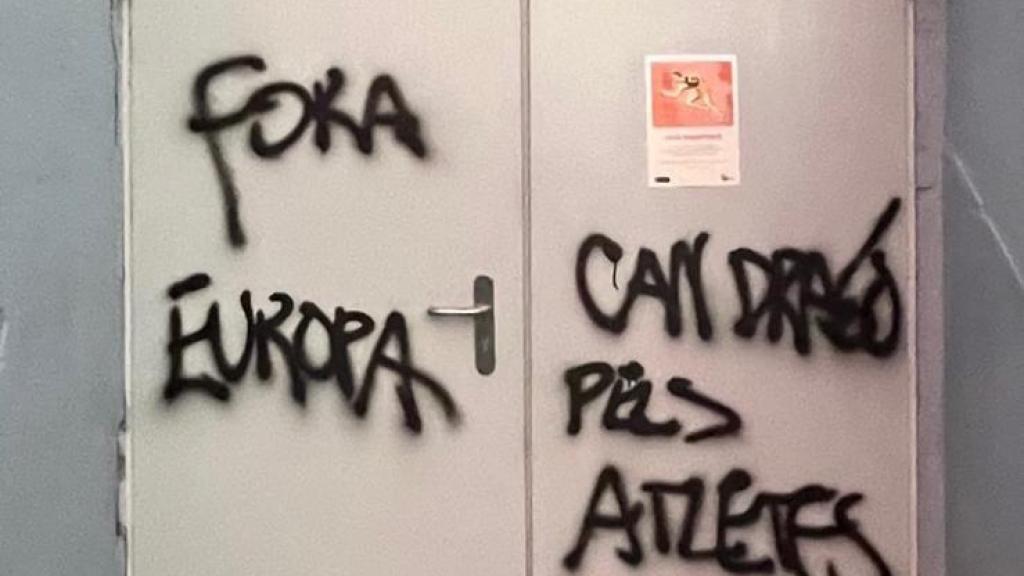 FORA
EUROPA
CAN DRAGÓ
PELS
ATLETES